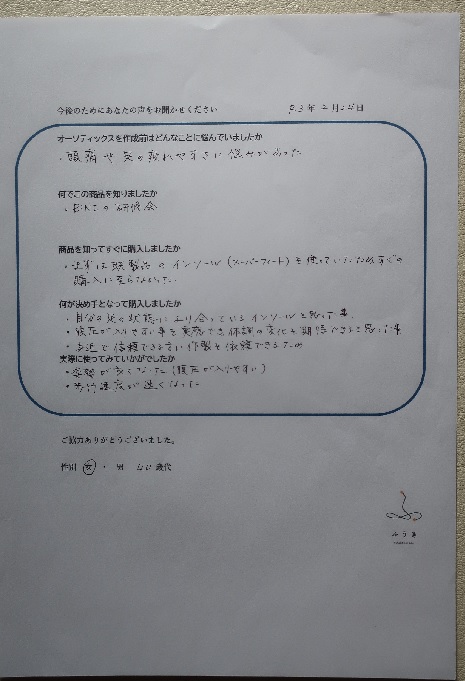 今後のためにあなたの声をお聞かせください R3年2月25日
オーソティックスを作成前はどんなことに悩んでいましたか
・頭痛や足の疲れやすさに悩みがあった
何でこの商品を知りましたか
の研修会
商品を知ってすぐに購入しましたか
・まずは既製品のインソール(スーパーフィート)を使っていたためすぐの
購入に至らなかった。
何が決め手となって購入しましたか
・自分の足の状態により合っているインソールと思って
・腹圧が入りやすい事を実感でき体調の変化も期待できると思った事
・身近で信頼できる方に作製を依頼できるため
実際に使ってみていかがでしたか
・姿勢が良くなった(腹圧が入りやすい)
・歩行速度が速くなった
ご協力ありがとうございました。
性別 女 ・ 男 歳代